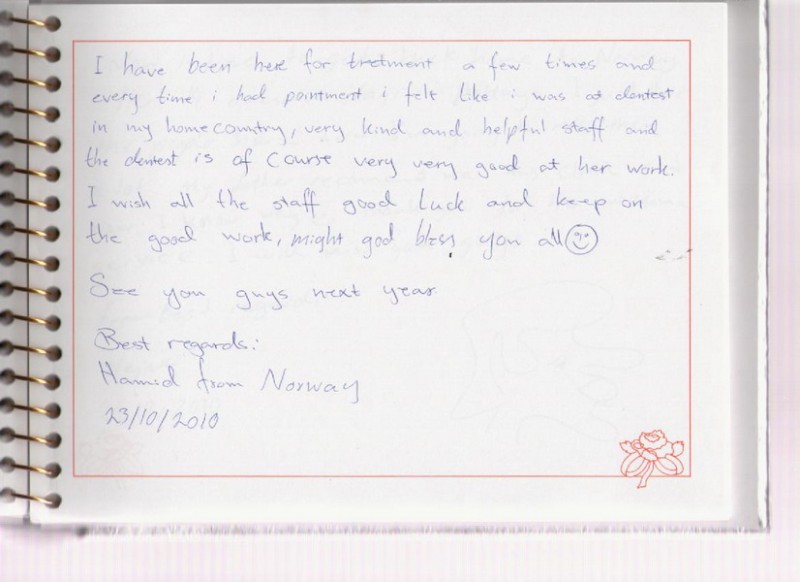 I have been here for tretment a few times and
every time i had pointment i felt like i was at dentest
in my homecountry, very kind and helpful staff and
the dentest is of course very very good at her work.
I wish all the staff good luck and keep on
the good work, might god bless you all
See you guys next year.
Best regards:
Hamid from Norway
23/10/2010